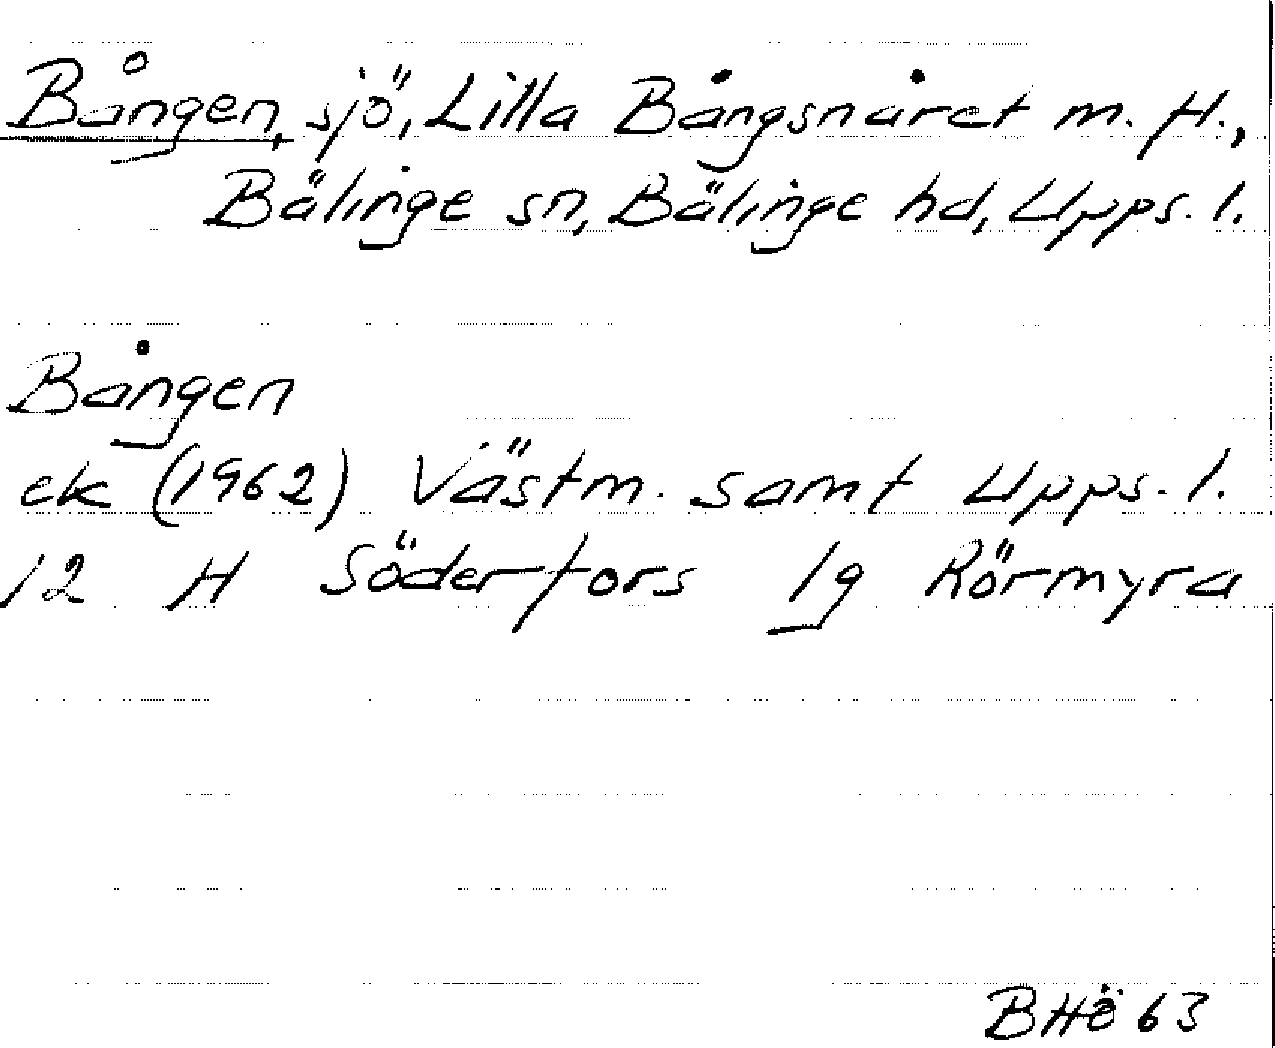 Bången, sjö, Lilla Bångsnåret m. fl.,
Bälinge sn, Bälinge hd, Upps. l.
Bången
ek (1962) Västm. samt Upps. l.
12 H Söderfors 1g Rörmyra
BHÖ 63